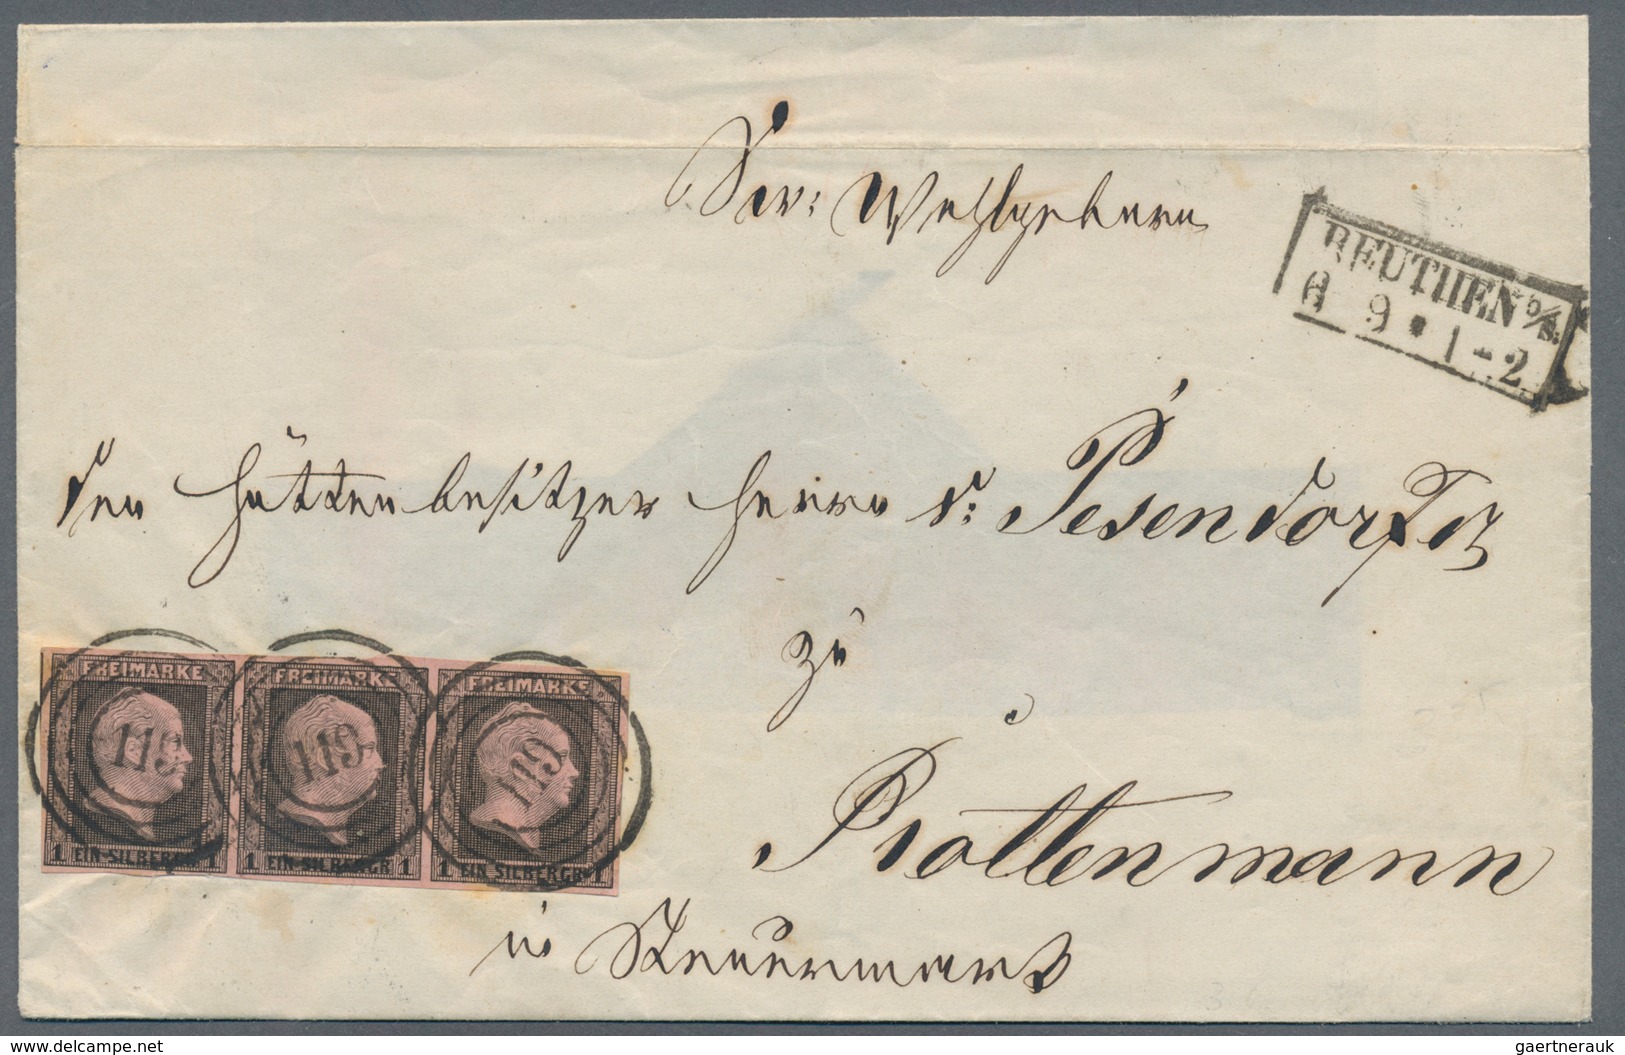 Sr: Wohlgeboren
BEUTHEN O/S.
6 9 * 1-2
den Hüttenbesitzer Herrn v: Pesendorfer
zu
Rottenmann
in Steuermark
FREIMARKE FREIMARKE FREIMARKE
119 119 119
1 EIN-SILBERGR 1 1 EIN-SILBERGR 1 1 EIN SILBERGR 1
www.delcampe.net
gaertnerauk